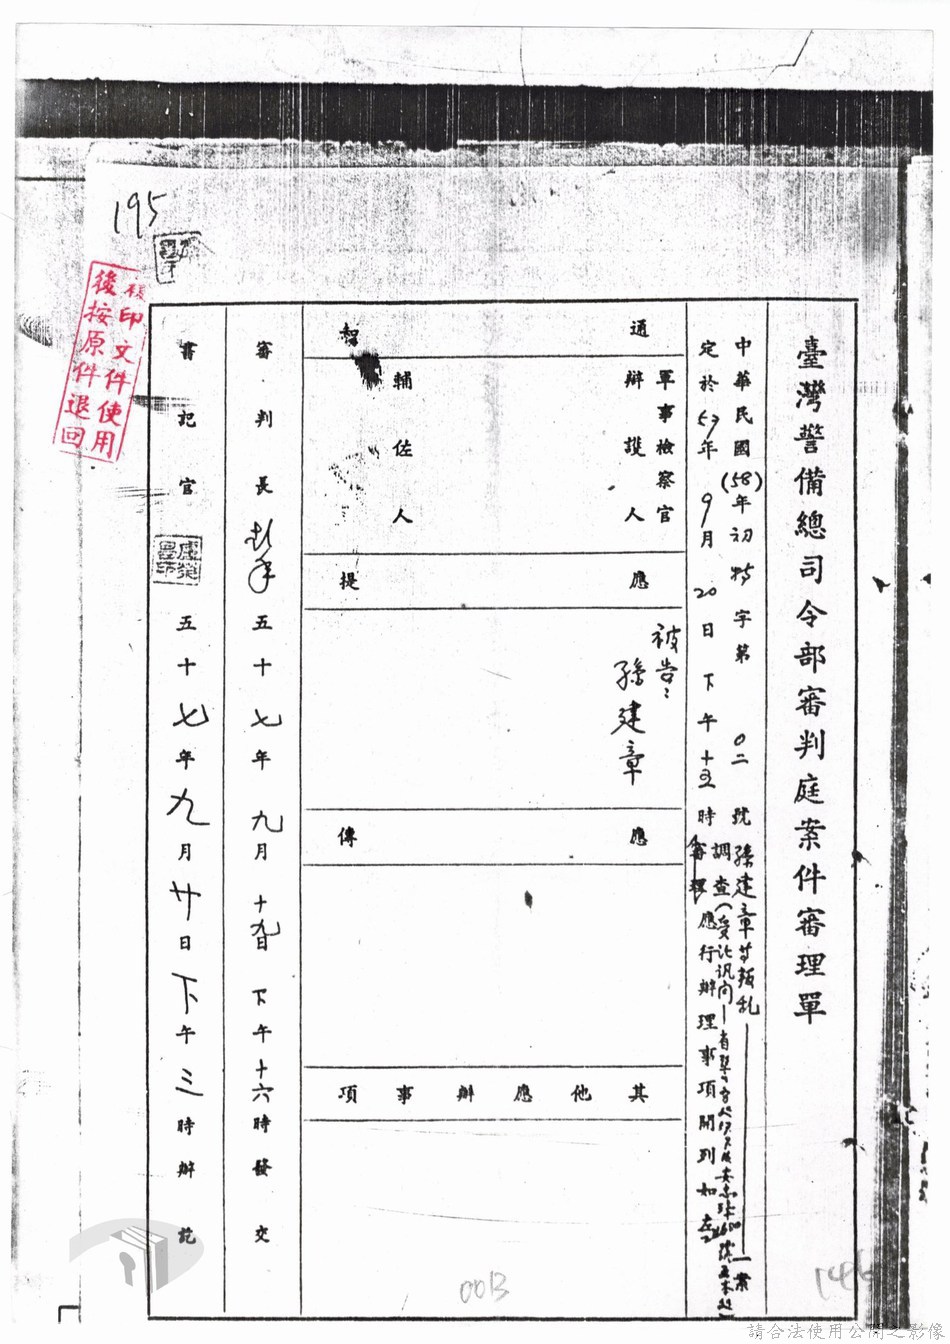 195
複印文件使用
後按原件退回
臺灣警備總司令部審判庭案件審理單
中華民國(58)年初特字第02號孫建章等叛亂一案
定於57年9月20日下午十五時
調查(受
審理
應行辦理事項開列如左
通知
軍事檢察官
辯護人
輔佐人
應提
被告:
孫建章
應傳
其他應辦事項
審判長
五十七年九月十九日下午十六時發交
書記官
五十七年九月廿日下午三時辦訖
0013
請合法使用公開之影像